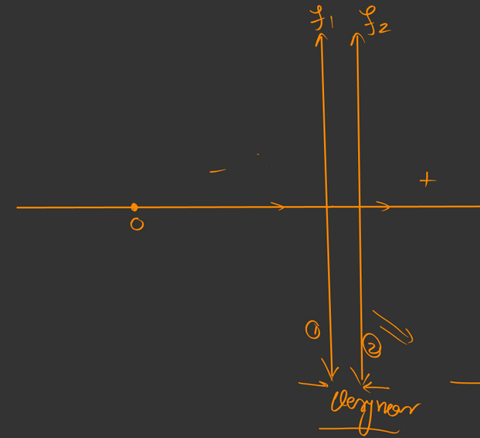 f₁ f₂
− +
O
① ②
Very near